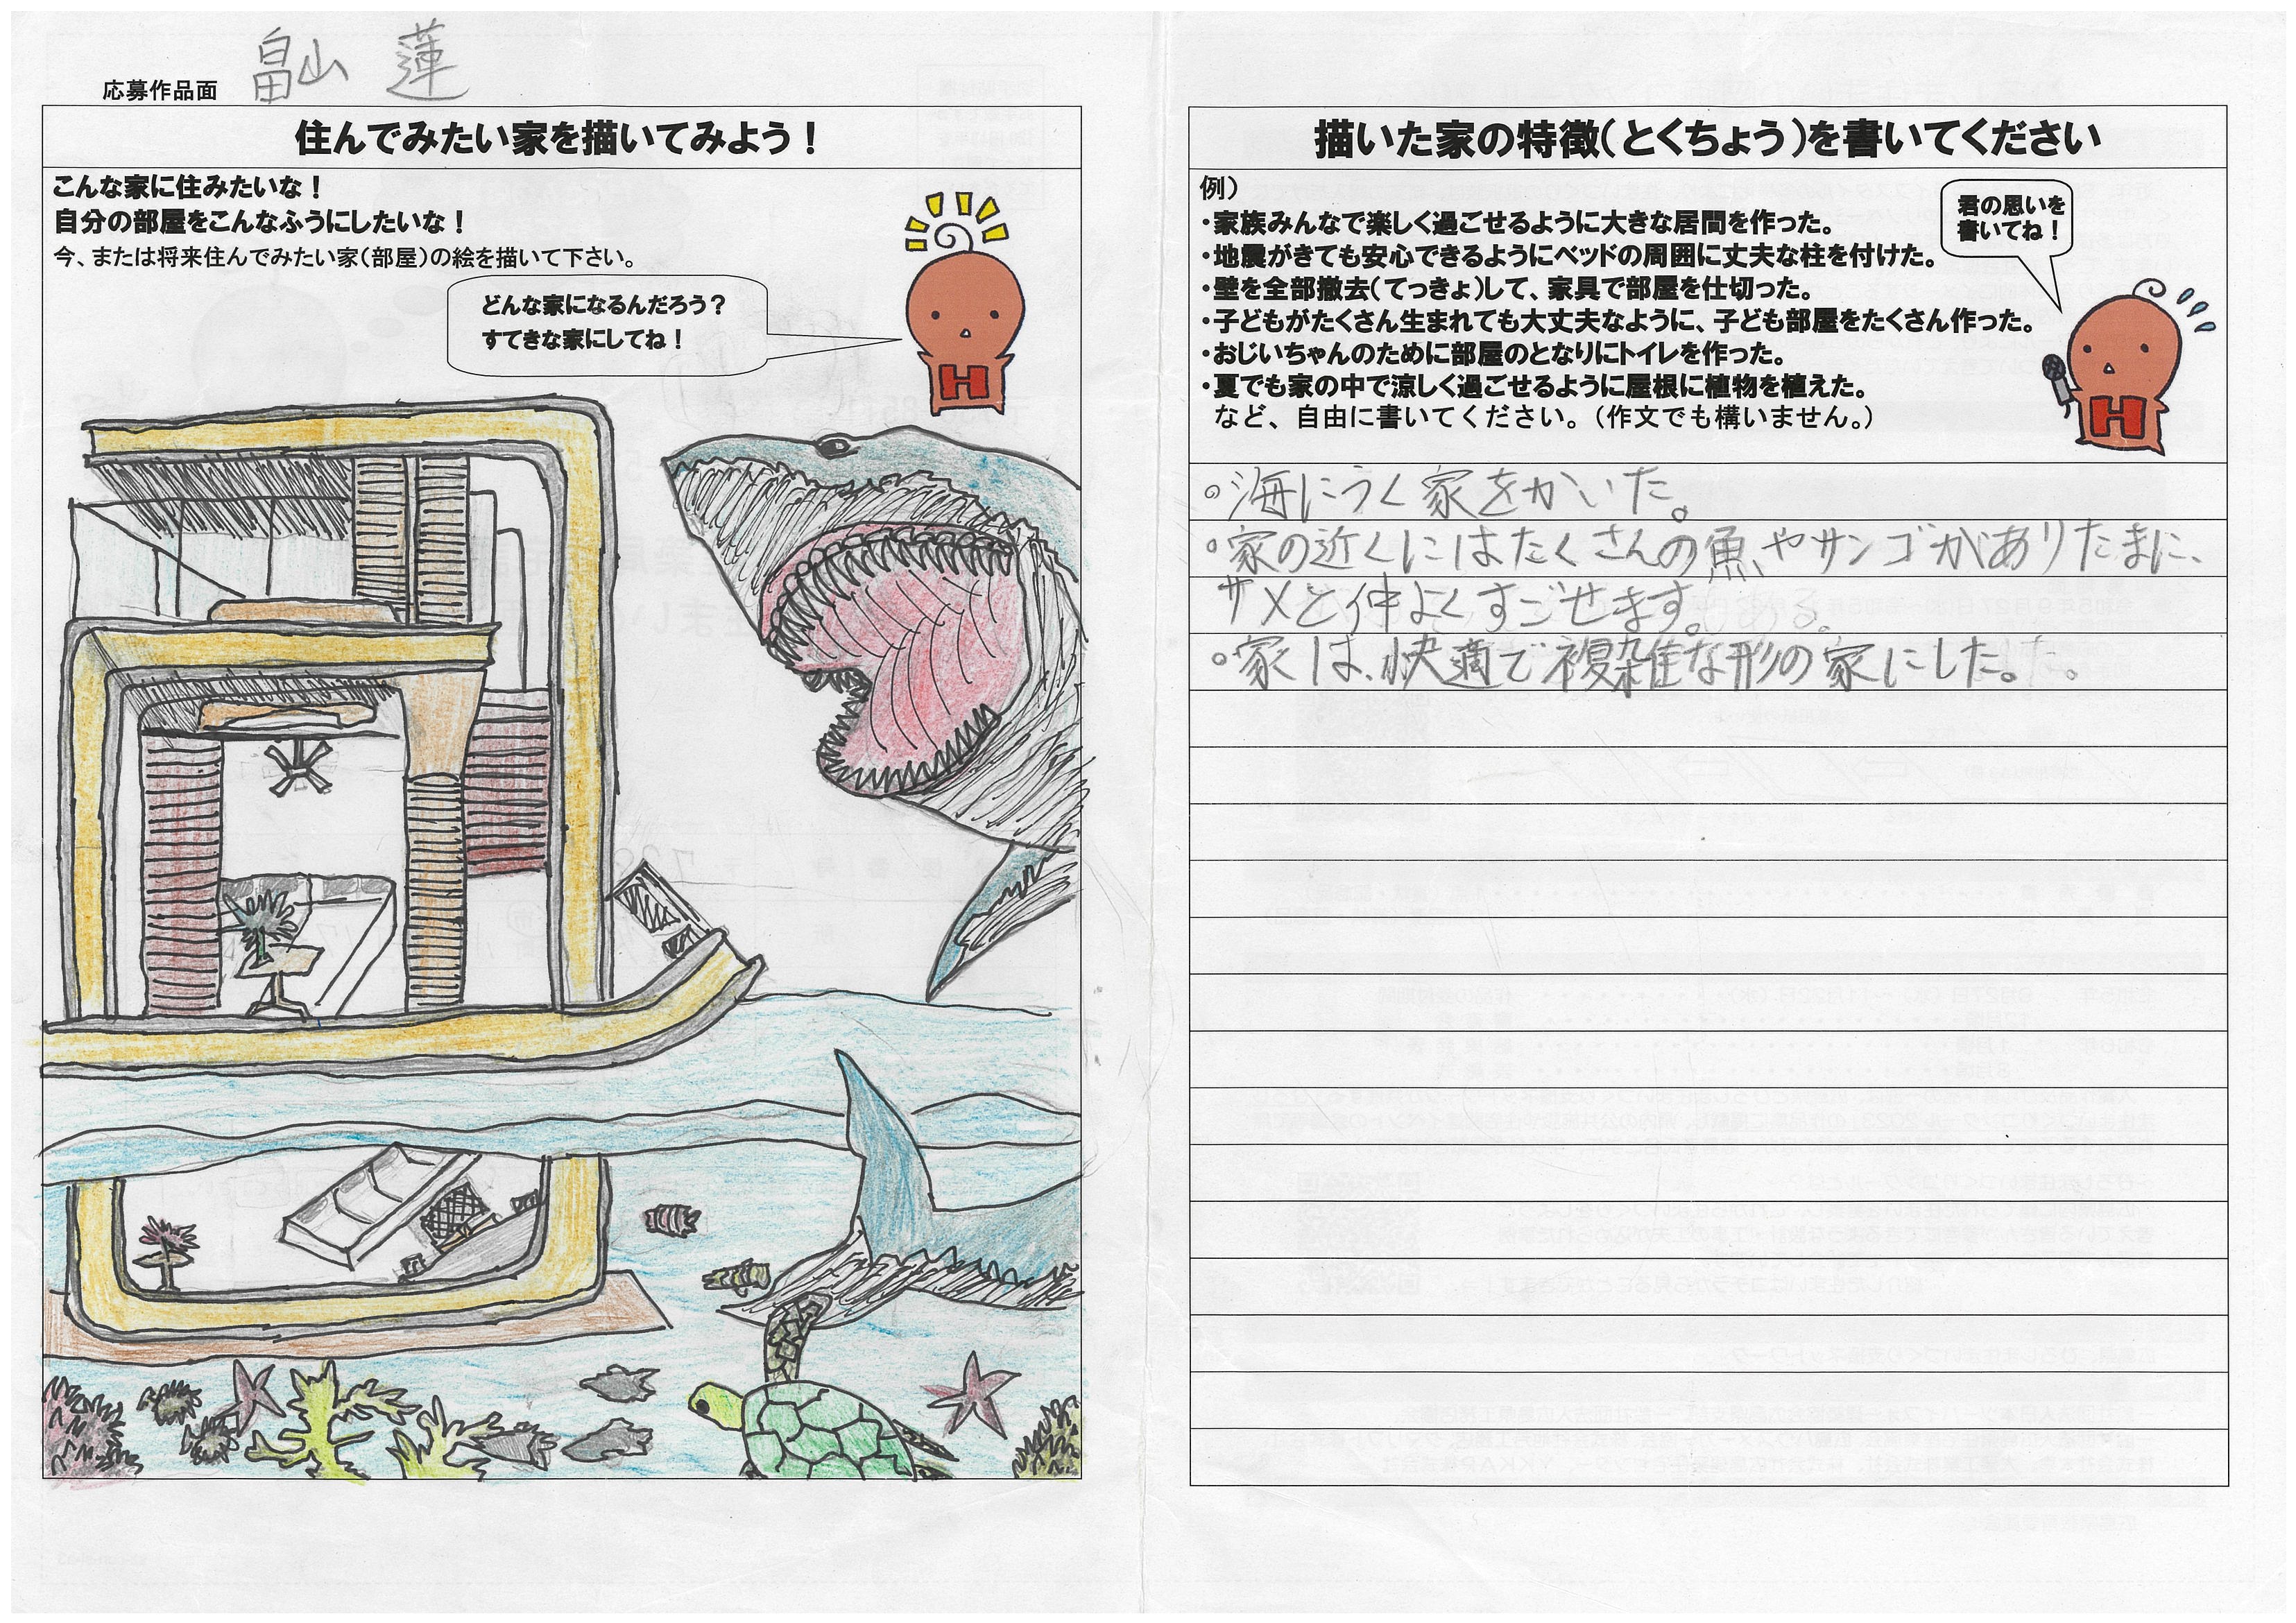 畠山 蓮
応募作品面
住んでみたい家を描いてみよう！
こんな家に住みたいな！
自分の部屋をこんなふうにしたいな！
今、または将来住んでみたい家（部屋）の絵を描いて下さい。
どんな家になるんだろう？
すてきな家にしてね！
H
描いた家の特徴（とくちょう）を書いてください
例）
・家族みんなで楽しく過ごせるように大きな居間を作った。
・地震がきても安心できるようにベッドの周囲に丈夫な柱を付けた。
・壁を全部撤去（てっきょ）して、家具で部屋を仕切った。
・子どもがたくさん生まれても大丈夫なように、子ども部屋をたくさん作った。
・おじいちゃんのために部屋のとなりにトイレを作った。
・夏でも家の中で涼しく過ごせるように屋根に植物を植えた。
など、自由に書いてください。（作文でも構いません。）
君の思いを
書いてね！
H
。海にうく家をかいた。
。家の近くにはたくさんの魚やサンゴがありたまに、
サメと仲よくすごせます。
。家は、快適で複雑な形の家にした。